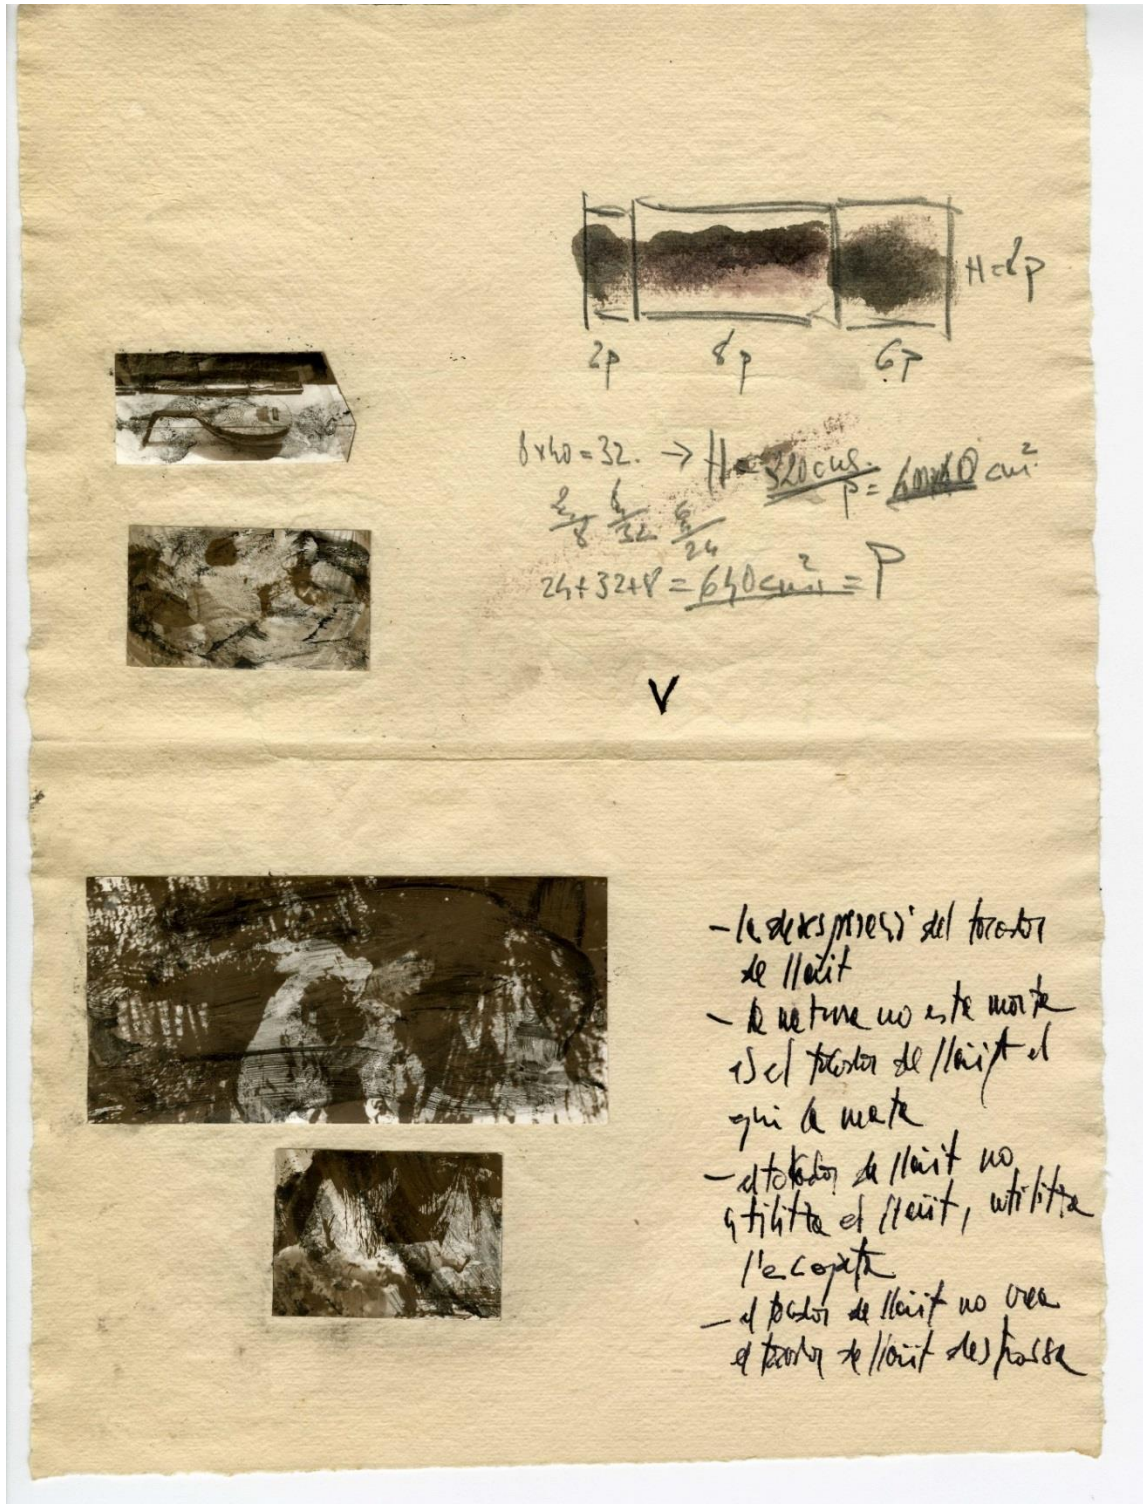 H=8p
2p 8p 6p
8x40=32. → H= 320 cms.
p= 40x40 cm²
8 32 24
24+32+8=640 cm² = P
V
- la desesperació del tocador
de llaüt
- la natura no esta morta
es el tocador de llaüt el
qui la mata
- el tocador de llaüt no
utilitza el llaüt, utilitza
l'escopeta
- el tocador de llaüt no crea
el tocador de llaüt destrossa